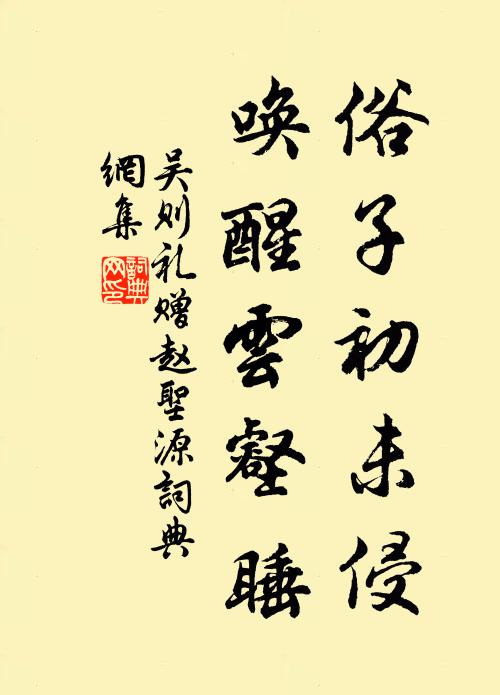 俗子初未侵
唤醒雲壑睡
吴则礼赠赵聖源詞典
網集
詞典
网印